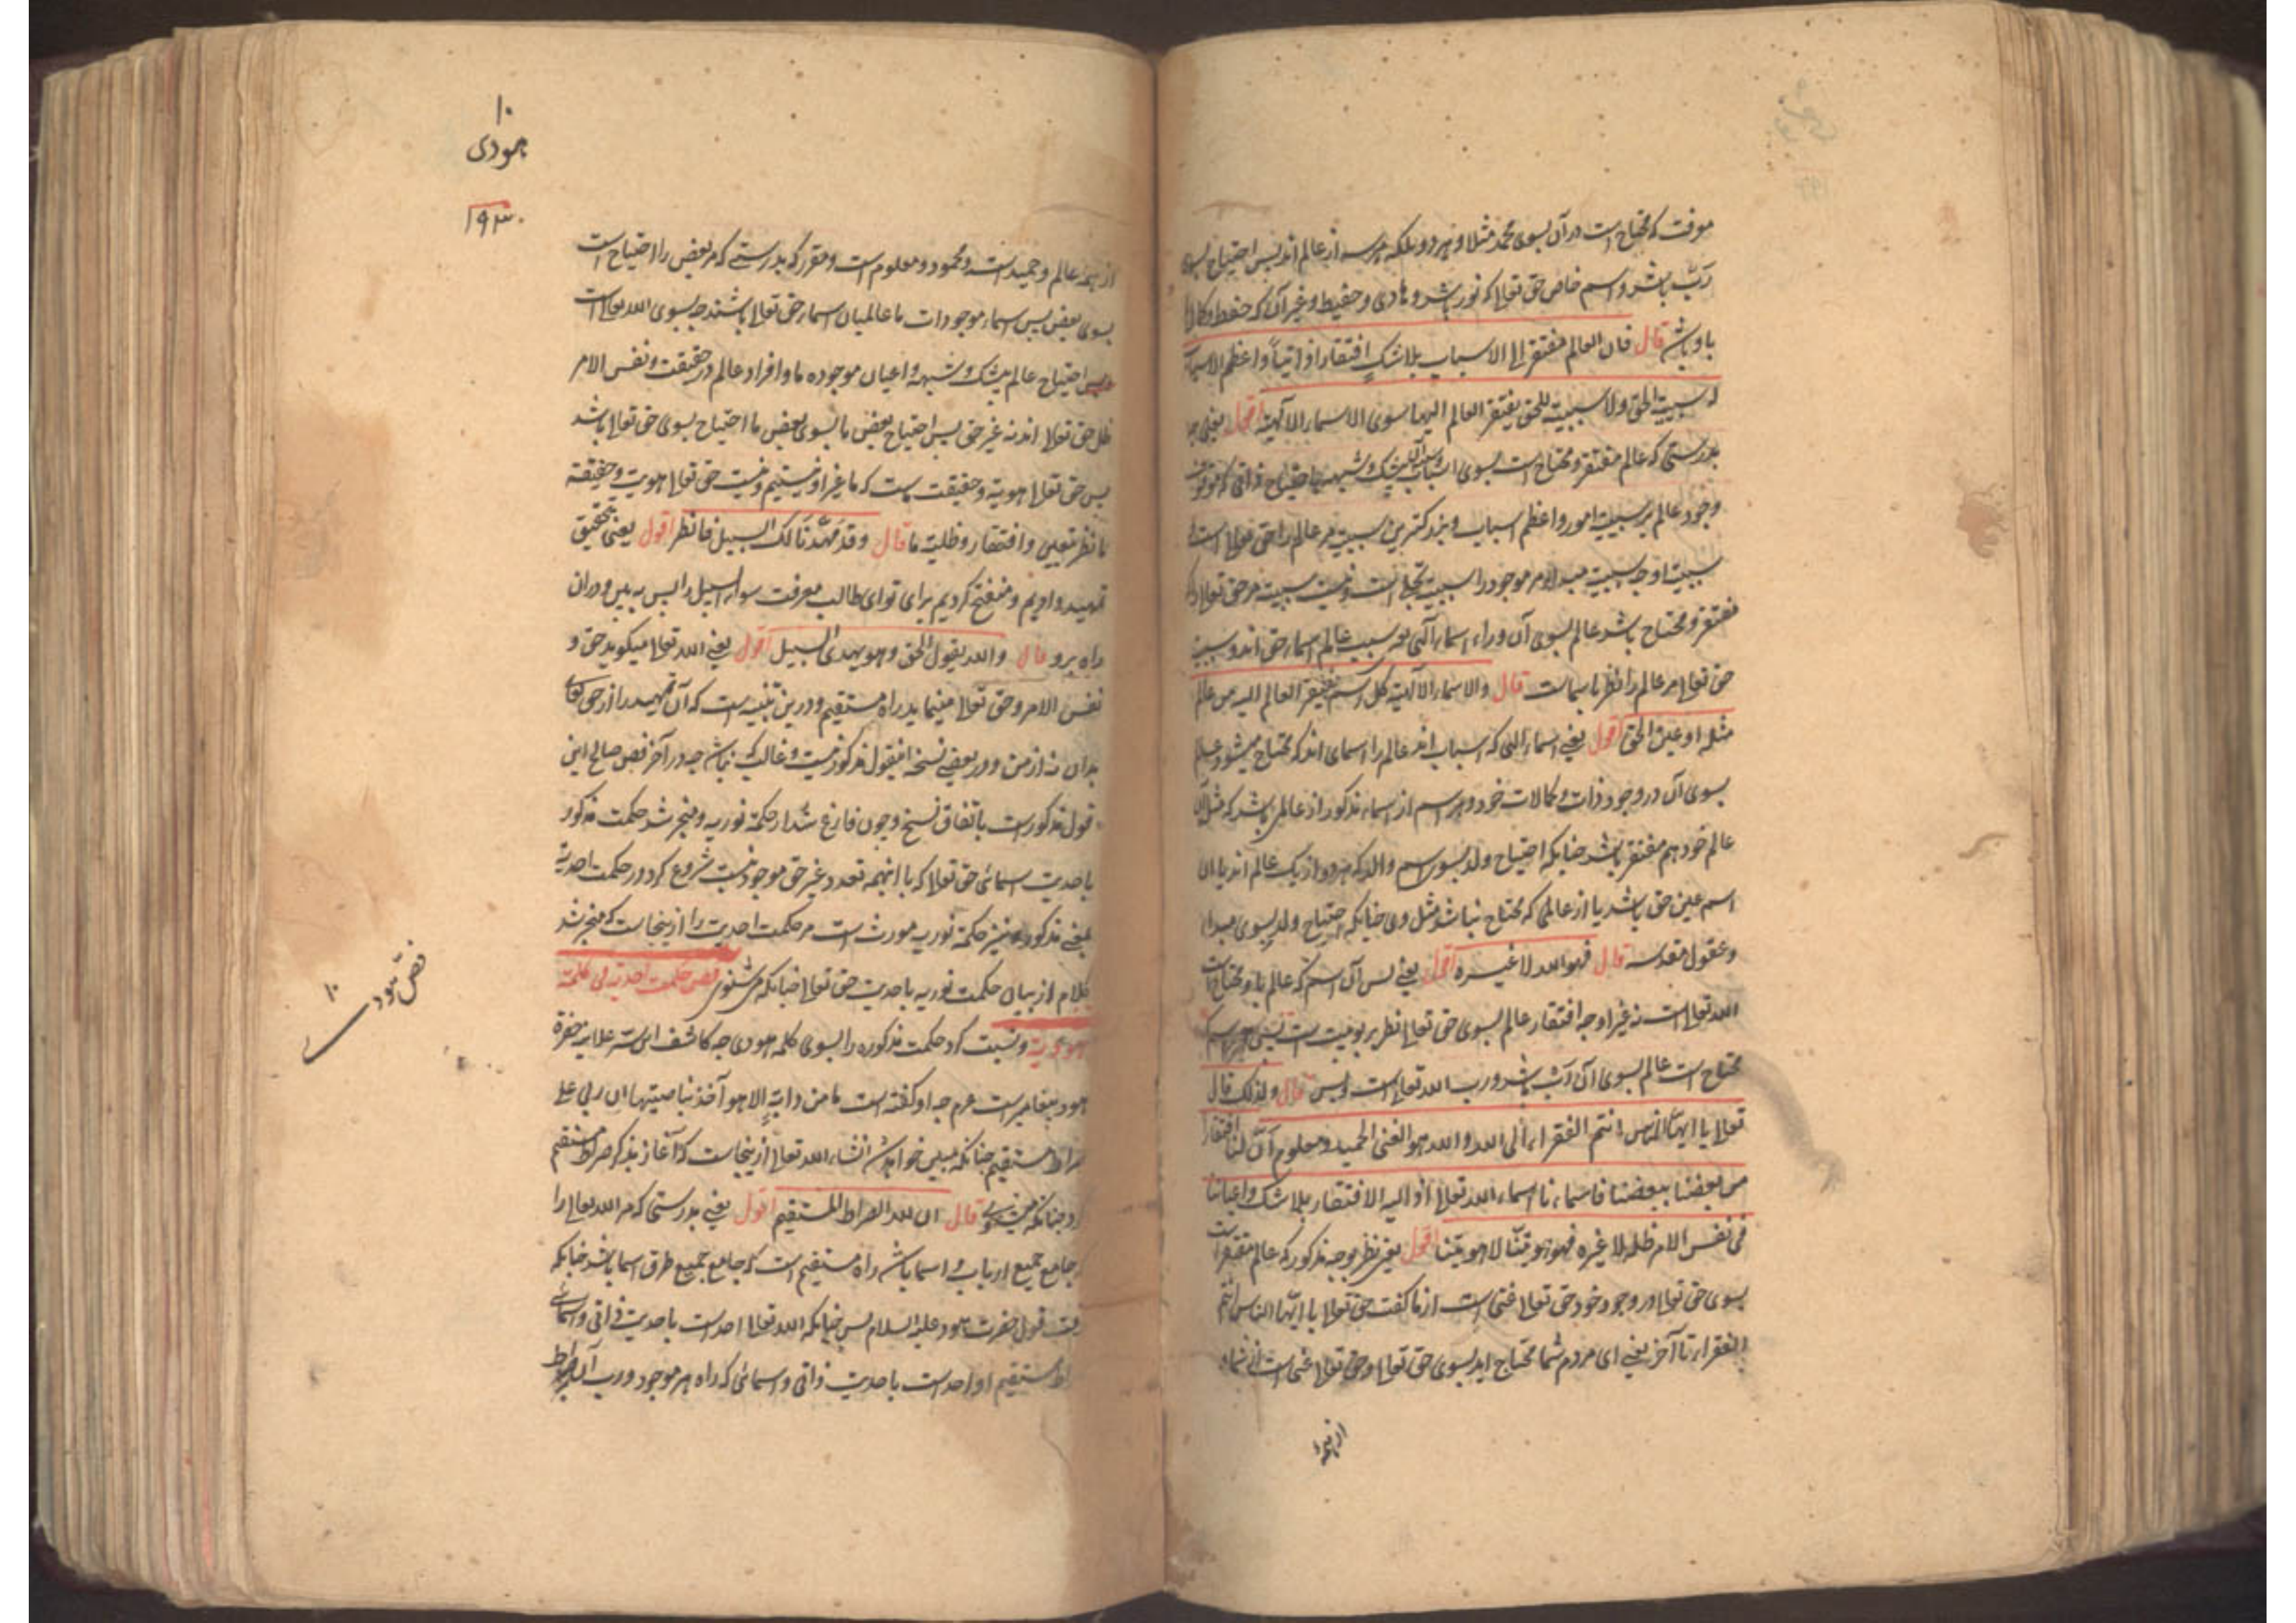 موقت که محتاج است در آن بسوی محمد مثلا و هر دو بلکه هر سه از عالم اند پس احتیاج بسوی
رب باشد و اسم خاص حق تعالا که نور باشد و هادی و حفیظ و غیر آن که حفظ و کالا
باو باشد قال فان العالم مفتقر الی الاسباب بلا شک افتقارا ذاتیا و اعظم الاسباب
له سببیة الحق ولا سببیة للحق یفتقر العالم الیها سوی الاسماء الالهیة اقول یعنی
بدرستی که عالم مفتقر و محتاج است بسوی اسباب بیشک و شبهه باحتیاج ذاتی که موقوف
وجود عالم بر سببیت امور و اعظم اسباب و بزرکترین سببیت مر عالم را حق تعالا است
سببیت او چه سببیت مبدا مر موجود را سببیت است و نیست سببیت مر حق تعالا را
مفتقر و محتاج باشد عالم بسوی آن وراء اسماء الهی هر سبب عالم اسماء حق اند و سببیت
حق تعالا مر عالم را نظر باسما است قال والاسماء الالهیة کل اسم یفتقر العالم الیه من عالم
مثله او عین الحق اقول یعنی اسماء الهی که اسباب اند عالم را اسمای اند که محتاج میشود عالم
بسوی آن در وجود ذات و کمالات خود و هر اسم از اسماء مذکور از عالمی باشد که مثل آن
عالم خود هم مفتقر باشد چنانکه احتیاج ولد بسوی اسم والد که هر دو از یک عالم اند یا آن
اسم عین حق باشد یا از عالمی که محتاج نباشد مثل وی چنانکه احتیاج ولد بسوی مبدا
و عقول مقدسه قال فهو الله لا غیره اقول یعنی پس آن اسم که عالم باو محتاج است
الله تعالا است نه غیر او چه افتقار عالم بسوی حق تعالا نظر بربوبیت است پس هر اسم که
محتاج است عالم بسوی آن رب باشد و رب الله تعالا است و بس قال ولذلک قال
تعالا یا ایها الناس انتم الفقراء الی الله والله هو الغنی الحمید ومعلوم ان لنا افتقارا
من بعضنا ببعضنا فاسماءنا اسماء الله تعالا اذ الیه الافتقار بلا شک واعیاننا
فی نفس الامر ظله لا غیره فهو هویتنا لا هویتنا اقول یعنی نظر بوجه مذکور که عالم مفتقر است
بسوی حق تعالا در وجود خود حق تعالا غنی است از ما کفت حق تعالا یا ایها الناس انتم
الفقراء تا آخر یعنی ای مردم شما محتاج اید بسوی حق تعالا و حق تعالا غنی است از شما
۱۰
هودی
۱۹۳۰
از همه عالم و حمید است و محمود و معلوم است و مقرر که بدرستی که مر بعض را احتیاج است
بسوی بعض پس اسماء موجودات ما عالمیان اسماء حق تعالا باشند چه بسوی الله تعالا است
احتیاج عالم بیشک و شبهه و اعیان موجوده ما و افراد عالم در حقیقت و نفس الامر
ظل حق تعالا اند نه غیر حق پس احتیاج بعض ما بسوی بعض ما احتیاج بسوی حق تعالا باشد
پس حق تعالا هویت و حقیقت ماست که ما غیر او نیستیم و نیست حق تعالا هویت و حقیقة
ما نظر بتعین و افتقار و ظلیت ما قال وقد مهدنا لک السبیل فانظر اقول یعنی بتحقیق
تمهید دادیم و منفتح کردیم برای تو ای طالب معرفت سواء السبیل را پس به بین و در آن
راه برو قال والله یقول الحق وهو یهدی السبیل اقول یعنی الله تعالا میکوید حق و
نفس الامر و حق تعالا مینماید راه مستقیم و درین تنبیه است که آن تمهید را از حق تعالی
بدان نه از من و در بعضی نسخه اینقول مذکور نیست و غالب که نباشد چه در آخر فص صالح این
قول مذکور است باتفاق نسخ و چون فارغ شد از حکمة نوریه و منجر شد حکمت مذکور
باحدیت اسمائی حق تعالا که با اینهمه تعدد غیر حق موجود نیست شروع کرد در حکمت احدیة
بفص مذکور و نیز حکمة نوریه مورث است مر حکمت احدیت را ازینجاست که منجر شد
کلام از بیان حکمت نوریه باحدیت حق تعالا چنانکه می شنوی فص حکمت احدیة فی کلمة
هودیة و نسبت کرد حکمت مذکوره را بسوی کلمه هودی چه کاشف این سر علانیه حضرة
هود پیغامبر است عم چه او کفته است ما من دابة الا هو آخذ بناصیتها ان ربی علی
صراط مستقیم چنانکه مبین خواهد شد انشاء الله تعالا ازینجاست که آغاز بذکر صراط مستقیم
کرد چنانکه میشنوی قال ان لله الصراط المستقیم اقول یعنی بدرستی که مر الله تعالا را
که جامع جمیع ارباب و اسما باشد راه مستقیم است که جامع جمیع طرق اسما باشد چنانکه
قول حضرت هود علیه السلام پس چنانکه الله تعالا احد است باحدیت ذاتی و اسمائی
صراط مستقیم او احد است باحدیت ذاتی و اسمائی که راه هر موجود و رب آن
فص هود ۱۰